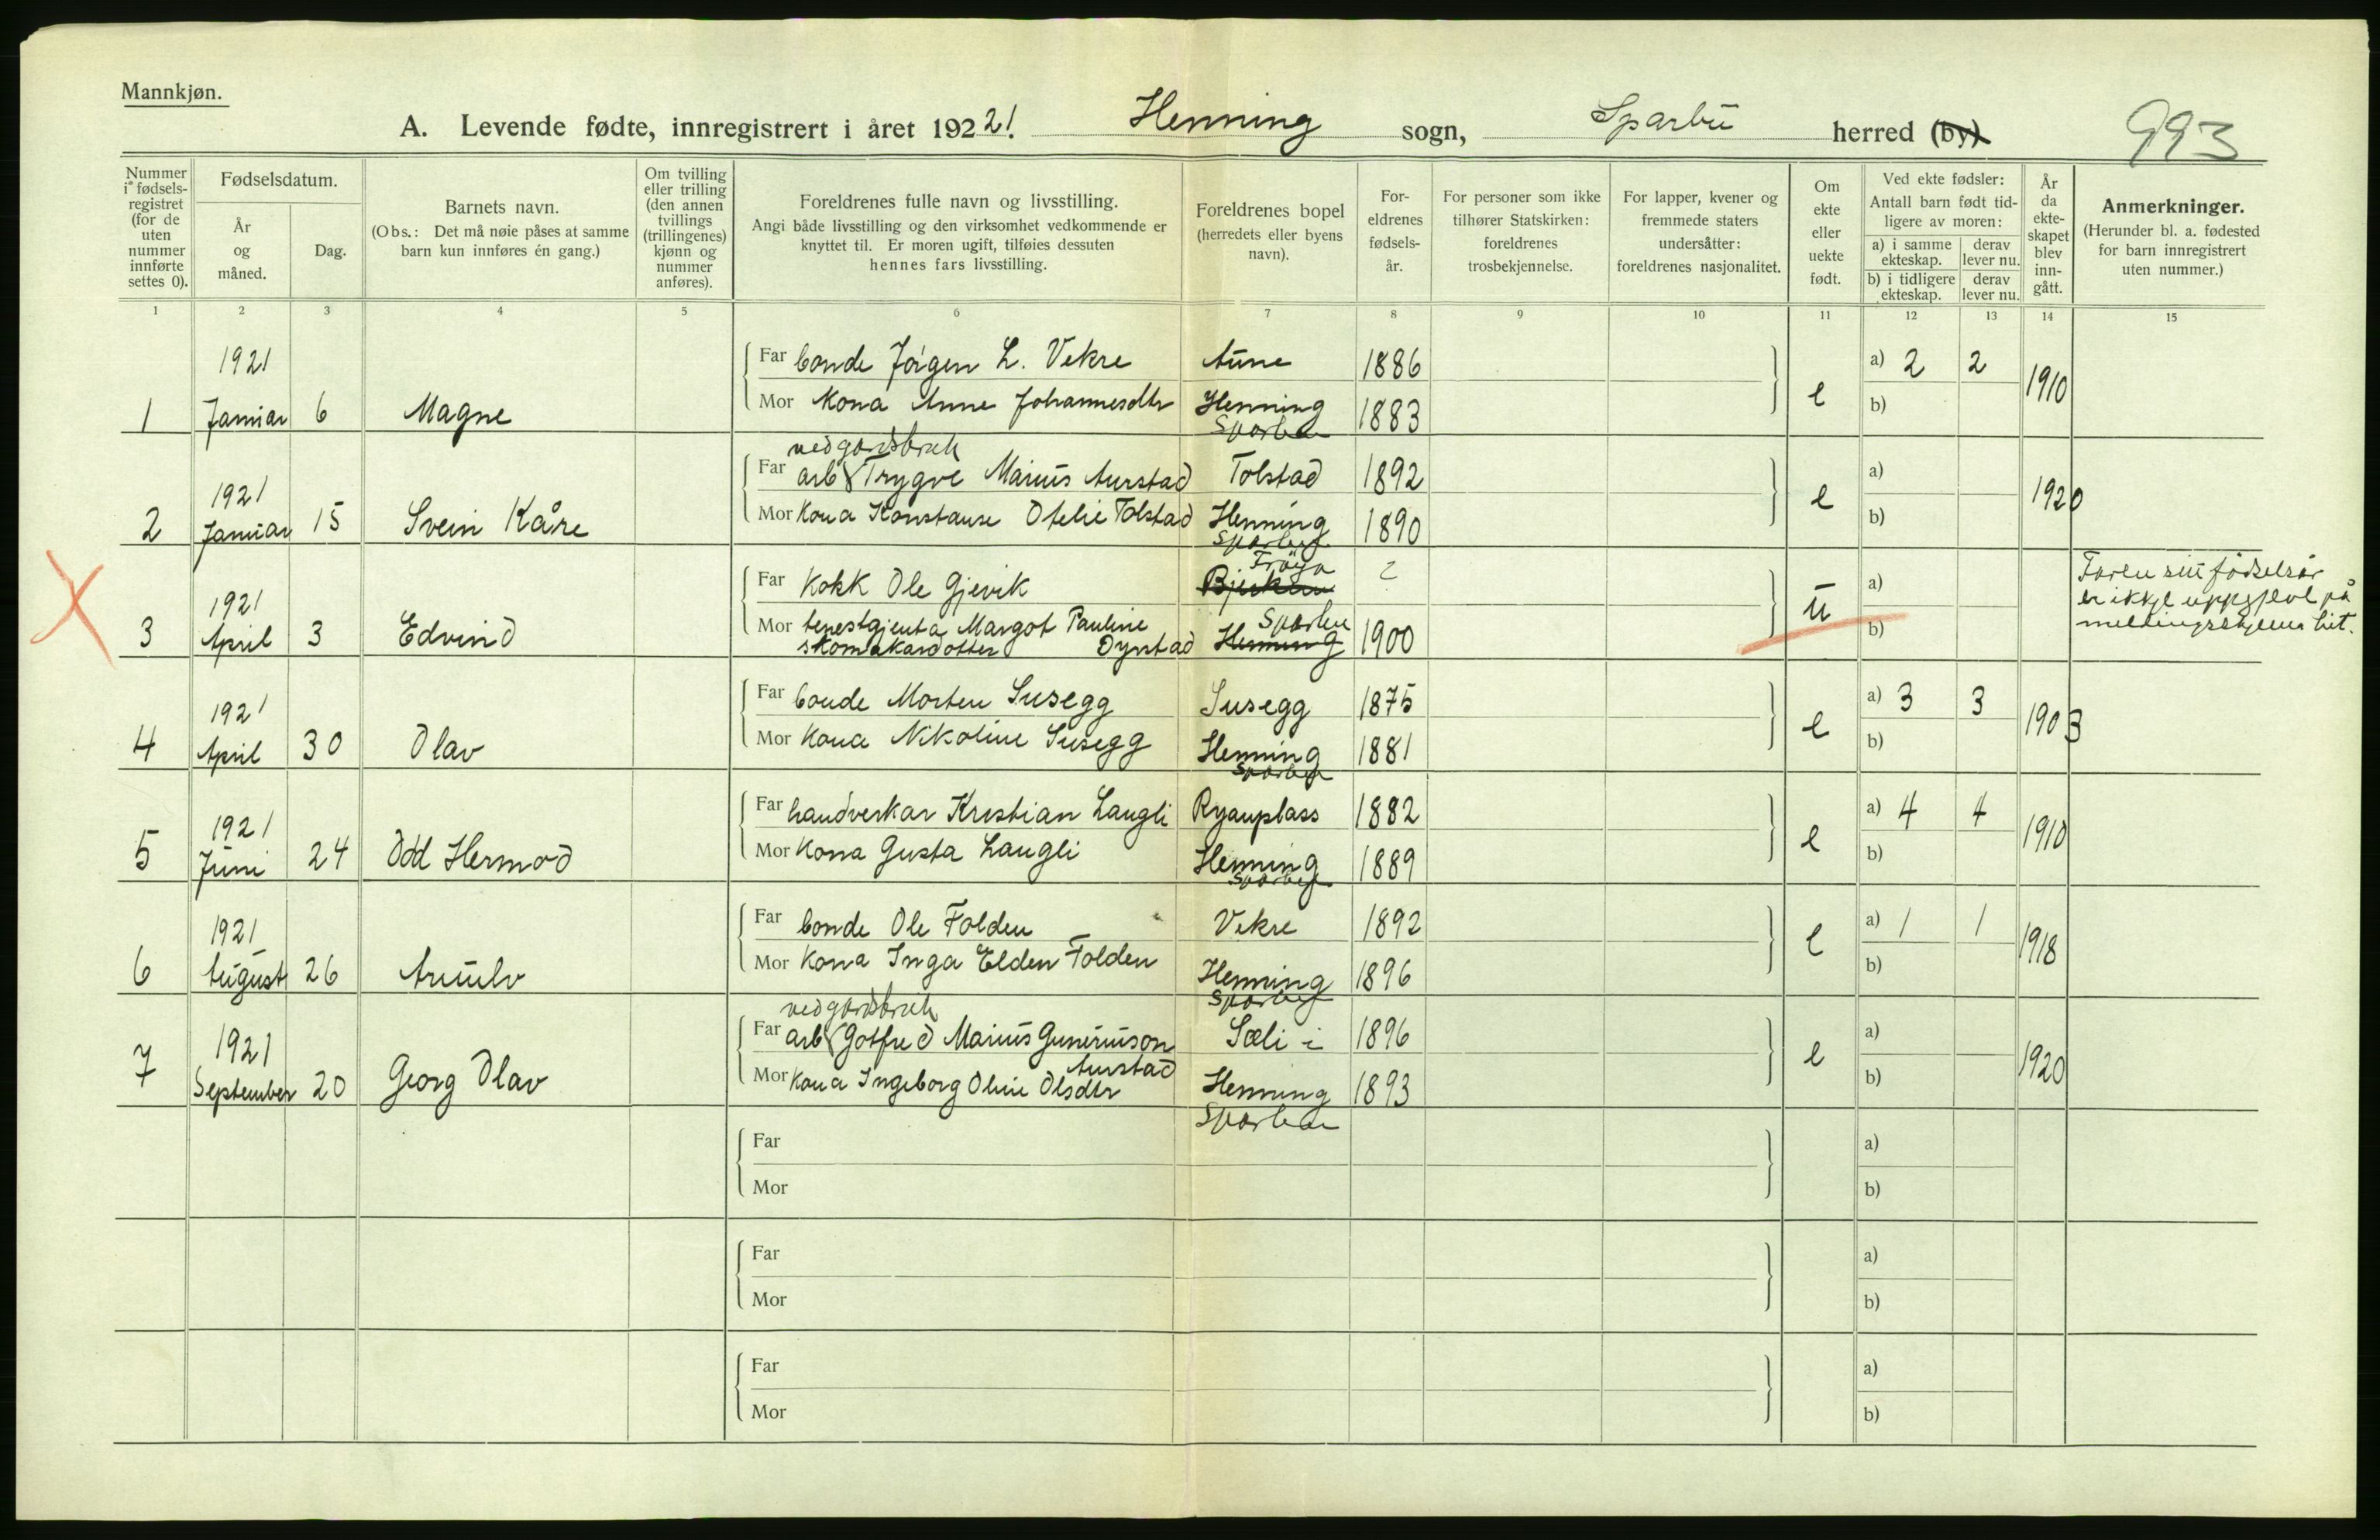 Mannkjøn.
A. Levende fødte, innregistrert i året 192 21. Henning sogn, Sparbu herred (by)
993
Nummer i fødselsregistret (for de uten nummer innførte settes 0).
Fødselsdatum.
År og måned.
Dag.
Barnets navn.
(Obs.: Det må nøie påses at samme barn kun innføres én gang.)
Om tvilling eller trilling (den annen tvillings (trillingenes) kjønn og nummer anføres).
Foreldrenes fulle navn og livsstilling.
Angi både livsstilling og den virksomhet vedkommende er knyttet til. Er moren ugift, tilføies dessuten hennes fars livsstilling.
Foreldrenes bopel (herredets eller byens navn).
Foreldrenes fødselsår.
For personer som ikke tilhører Statskirken: foreldrenes trosbekjennelse.
For lapper, kvener og fremmede staters undersåtter: foreldrenes nasjonalitet.
Om ekte eller uekte født.
Ved ekte fødsler: Antall barn født tidligere av moren:
a) i samme ekteskap. derav lever nu.
b) i tidligere ekteskap. derav lever nu.
År da ekteskapet blev inngått.
Anmerkninger.
(Herunder bl. a. fødested for barn innregistrert uten nummer.)
1 2 3 4 5 6 7 8 9 10 11 12 13 14 15
1921 Far bonde Jørgen L. Vekre Aune 1886 a) 2 2
1 Januar 6 Magne Mor Kona Anne Johannesdtr Henning Sparbu 1883 e b) 1910
ved gardsbruk
1921 Far arb Trygve Marius Aurstad Tolstad 1892 a)
2 Januar 15 Svein Kåre Mor Kona Konstanse Otelie Tolstad Henning Sparbu 1890 e b) 1920
1921 Far Kokk Ole Gjevik Frøya ? a)
3 April 3 Edvind Mor tenestgjenta Margot Pauline Dyrstad Sparbu Henning 1900 u b)
skomakardotter
Faren sitt fødselsår
er ikkje uppgjeve på
meldingsskjema hit.
1921 Far bonde Morten Susegg Susegg 1875 a) 3 3
4 April 30 Olav Mor Kona Nikoline Susegg Henning Sparbu 1881 e b) 1903
1921 Far handverkar Kristian Langli Ryanplass 1882 a) 4 4
5 Juni 24 Odd Hermod Mor Kona Gusta Langli Henning Sparbu 1889 e b) 1910
1921 Far bonde Ole Folden Vekre 1892 a) 1 1
6 August 26 Arnulv Mor Kona Inga Elden Folden Henning Sparbu 1896 e b) 1918
ved gardsbruk
1921 Far arb Gotfred Marius Guneriuson Aurstad Sæli i 1896 a)
7 September 20 Georg Olav Mor Kona Ingeborg Oline Olsdtr Henning Sparbu 1893 e b) 1920
Far a)
Mor b)
Far a)
Mor b)
Far a)
Mor b)